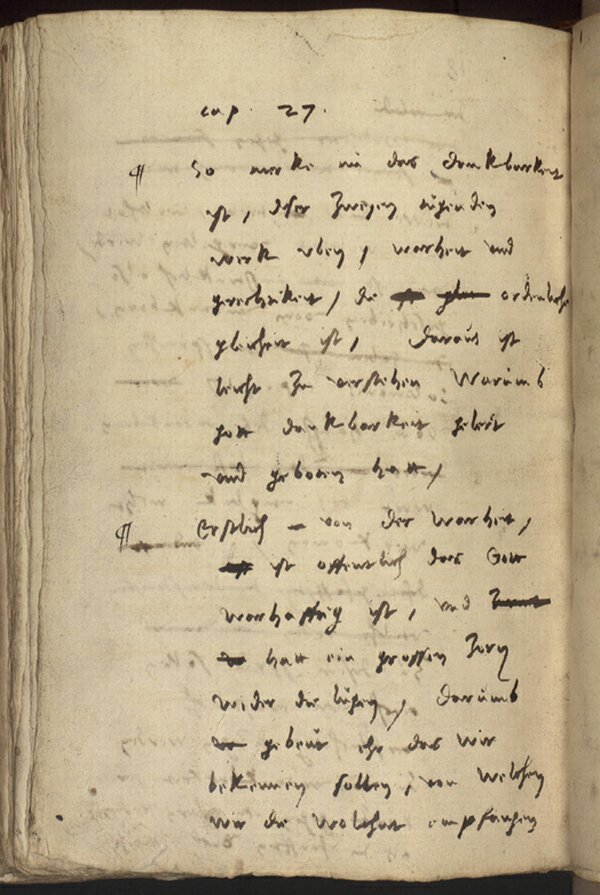 cap. 27.
¶ So merke nu das dankbarkeit
ist, diser zweyen tugenden
werk vben, warheit und
gerechtikeit, die ordenliche
gleicheit ist, daraus ist
leicht zu verstehen warumb
gott dankbarkeit gelert
und geboten hatt,
¶ Erstlich von der warheit,
ist offentlich das Gott
warhafftig ist, und
hatt ein grossen zorn
wider die lugen, darumb
gebeut ehr das wir
bekennen sollen, von welchen
wir die wolthat empfangen